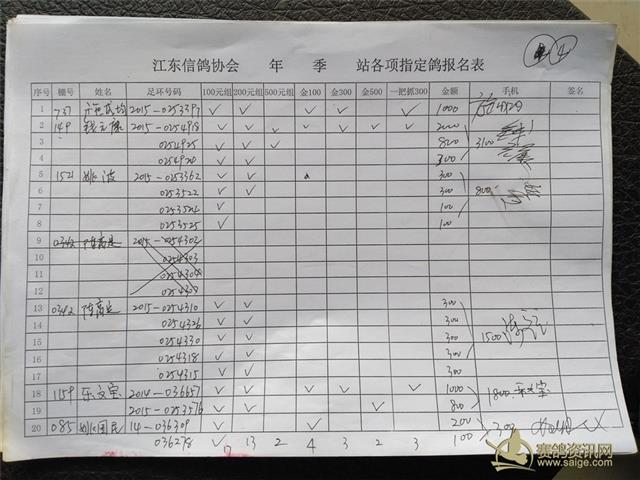 江东信鸽协会 年 季 站各项指定鸽报名表
序号 棚号 姓名 足环号码 100元组 200元组 500元组 金100 金300 金500 一把抓300 金额 手机 签名
1 737 2015-0253397 ✓ ✓ ✓ ✓ ✓ 1000
2 149 2015-0254918 ✓ ✓ ✓ ✓ ✓ ✓ ✓ 2000
3 0254925 ✓ ✓ ✓ 800 3100
4 0254920 ✓ ✓ 300
5 1521 2015-0253362 ✓ ✓ 300
6 0253522 ✓ ✓ 300 800
7 0253524 ✓ 100
8 0253525 ✓ 100
9 0342 2015-0254302
10 0254303
11 0254304
12 0254309
13 0342 2015-0254310 ✓ ✓ 300
14 0254326 ✓ ✓ 300
15 0254330 ✓ ✓ 300 1500
16 0254318 ✓ ✓ 300
17 0254315 ✓ ✓ 300
18 1159 乐文宝 2014-036657 ✓ ✓ ✓ ✓ ✓ 1000 1800 乐文宝
19 2015-0253576 ✓ ✓ ✓ 800
20 085 姚国民 14-036309 ✓ ✓ 200 300
036278 ✓ 17 13 2 4 3 2 3 100
赛鸽资讯网
www.saige.com